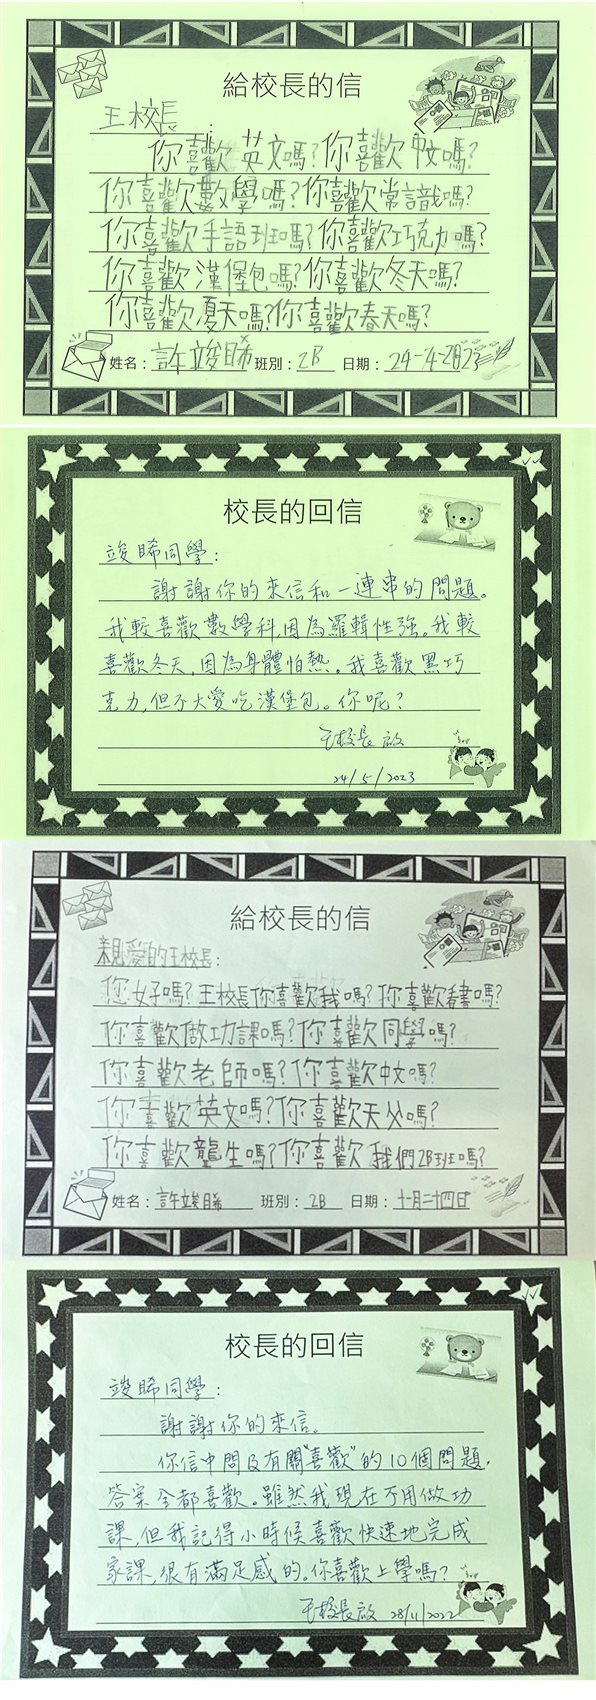 給校長的信
王校長：
你喜歡英文嗎?你喜歡中文嗎?
你喜歡數學嗎?你喜歡常識嗎?
你喜歡手語班嗎?你喜歡巧克力嗎?
你喜歡漢堡包嗎?你喜歡冬天嗎?
你喜歡夏天嗎?你喜歡春天嗎?
姓名：許竣睎 班別：2B 日期：24-4-2023
校長的回信
竣睎同學：
謝謝你的來信和一連串的問題。
我較喜歡數學科,因為羅輯性強。我較
喜歡冬天,因為身體怕熱。我喜歡黑巧
克力,但不大愛吃漢堡包。你呢?
王校長啟
24/5/2023
給校長的信
親愛的王校長：
您好嗎?王校長你喜歡我嗎?你喜歡書嗎?
你喜歡做功課嗎?你喜歡同學嗎?
你喜歡老師嗎?你喜歡中文嗎?
你喜歡英文嗎?你喜歡天父嗎?
你喜歡龍生嗎?你喜歡我們2B班嗎?
姓名：許竣睎 班別：2B 日期：十月二十四日
校長的回信
竣睎同學：
謝謝你的來信。
你信中問及有關"喜歡"的10個問題,
答案全都喜歡。雖然我現在不用做功
課,但我記得小時候喜歡快速地完成
家課,很有滿足感的。你喜歡上學嗎?
王校長啟 28/11/2022